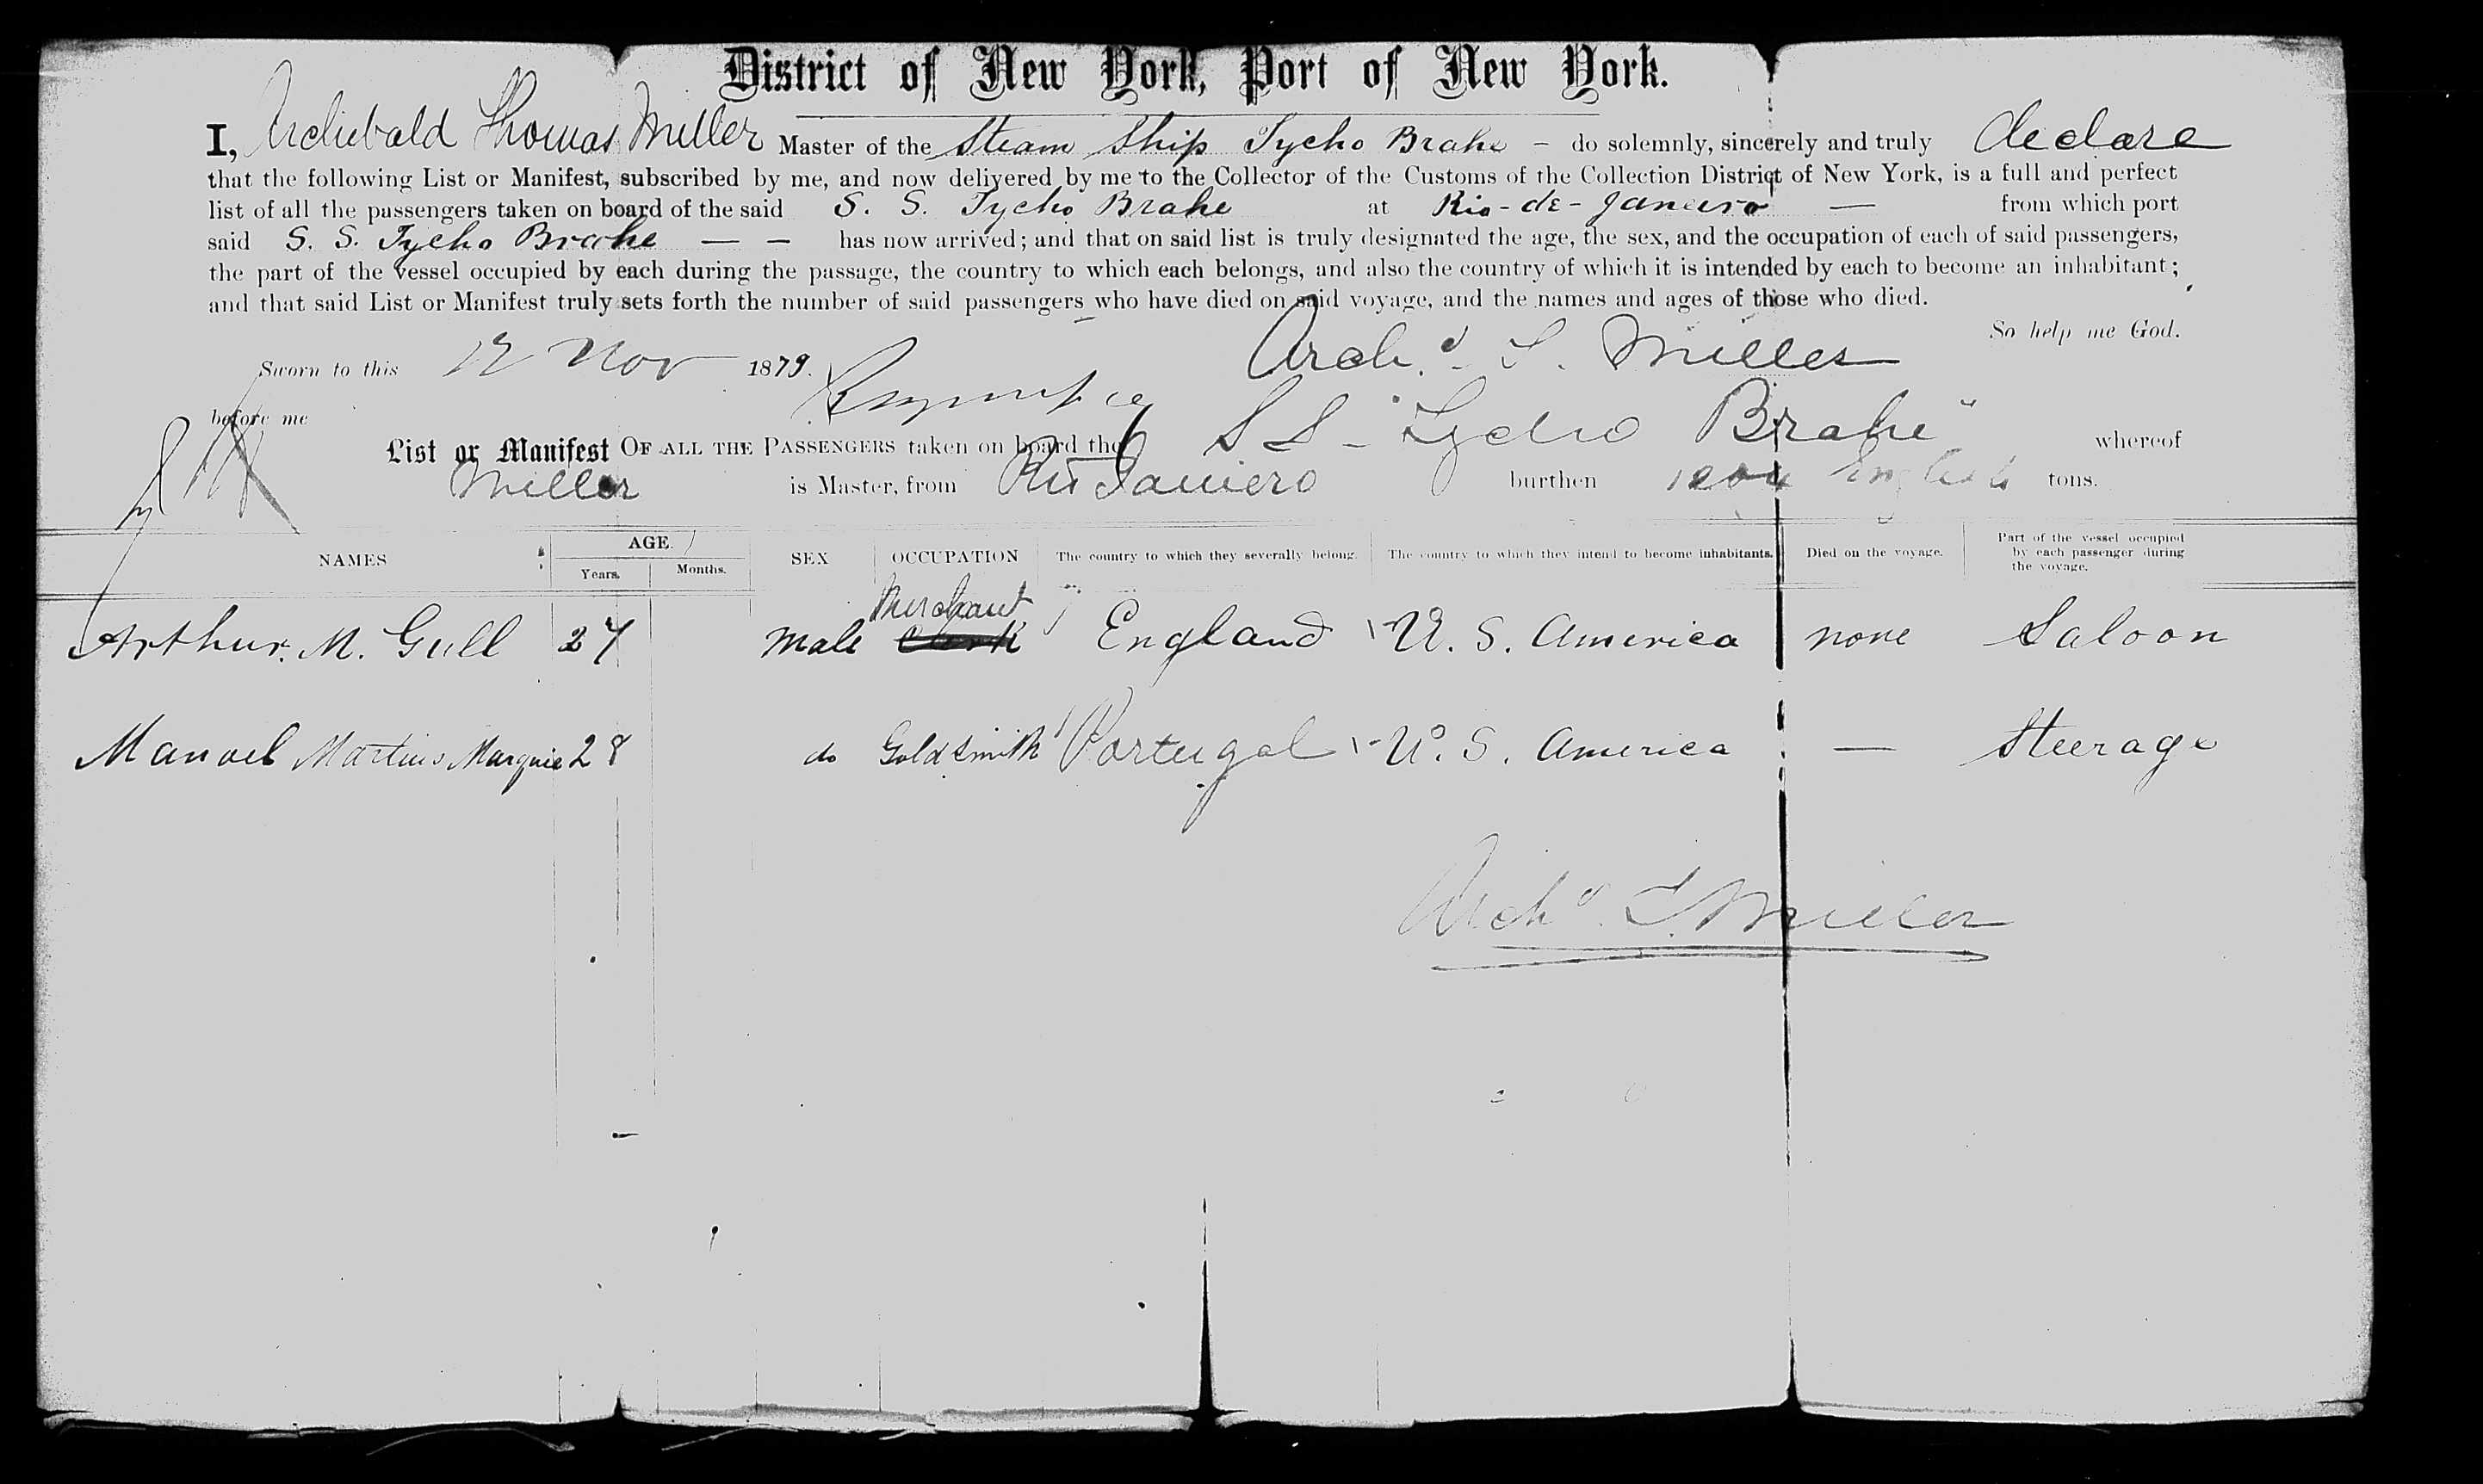 District of New York, Port of New York.
I, Archibald Thomas Miller Master of the Steam Ship Tycho Brahe – do solemnly, sincerely and truly declare
that the following List or Manifest, subscribed by me, and now delivered by me to the Collector of the Customs of the Collection District of New York, is a full and perfect
list of all the passengers taken on board of the said S. S. Tycho Brahe at Rio-de-Janeiro — from which port
said S. S. Tycho Brahe — — has now arrived; and that on said list is truly designated the age, the sex, and the occupation of each of said passengers,
the part of the vessel occupied by each during the passage, the country to which each belongs, and also the country of which it is intended by each to become an inhabitant;
and that said List or Manifest truly sets forth the number of said passengers who have died on said voyage, and the names and ages of those who died.
So help me God.
Sworn to this 12 Nov 1879. Archd. T. Miller
before me
List or Manifest OF ALL THE PASSENGERS taken on board the S S - "Tycho Brahe" whereof
Miller is Master, from Rio Janiero burthen English tons.
NAMES AGE. SEX OCCUPATION The country to which they severally belong. The country to which they intend to become inhabitants. Died on the voyage. Part of the vessel occupied by each passenger during the voyage.
Years. Months.
Merchant
Arthur. M. Gull 27 Male Clerk England U. S. America none Saloon
Manoel Martins Marquie 28 do Goldsmith Portugal U. S. America — Steerage
Archd. T. Miller